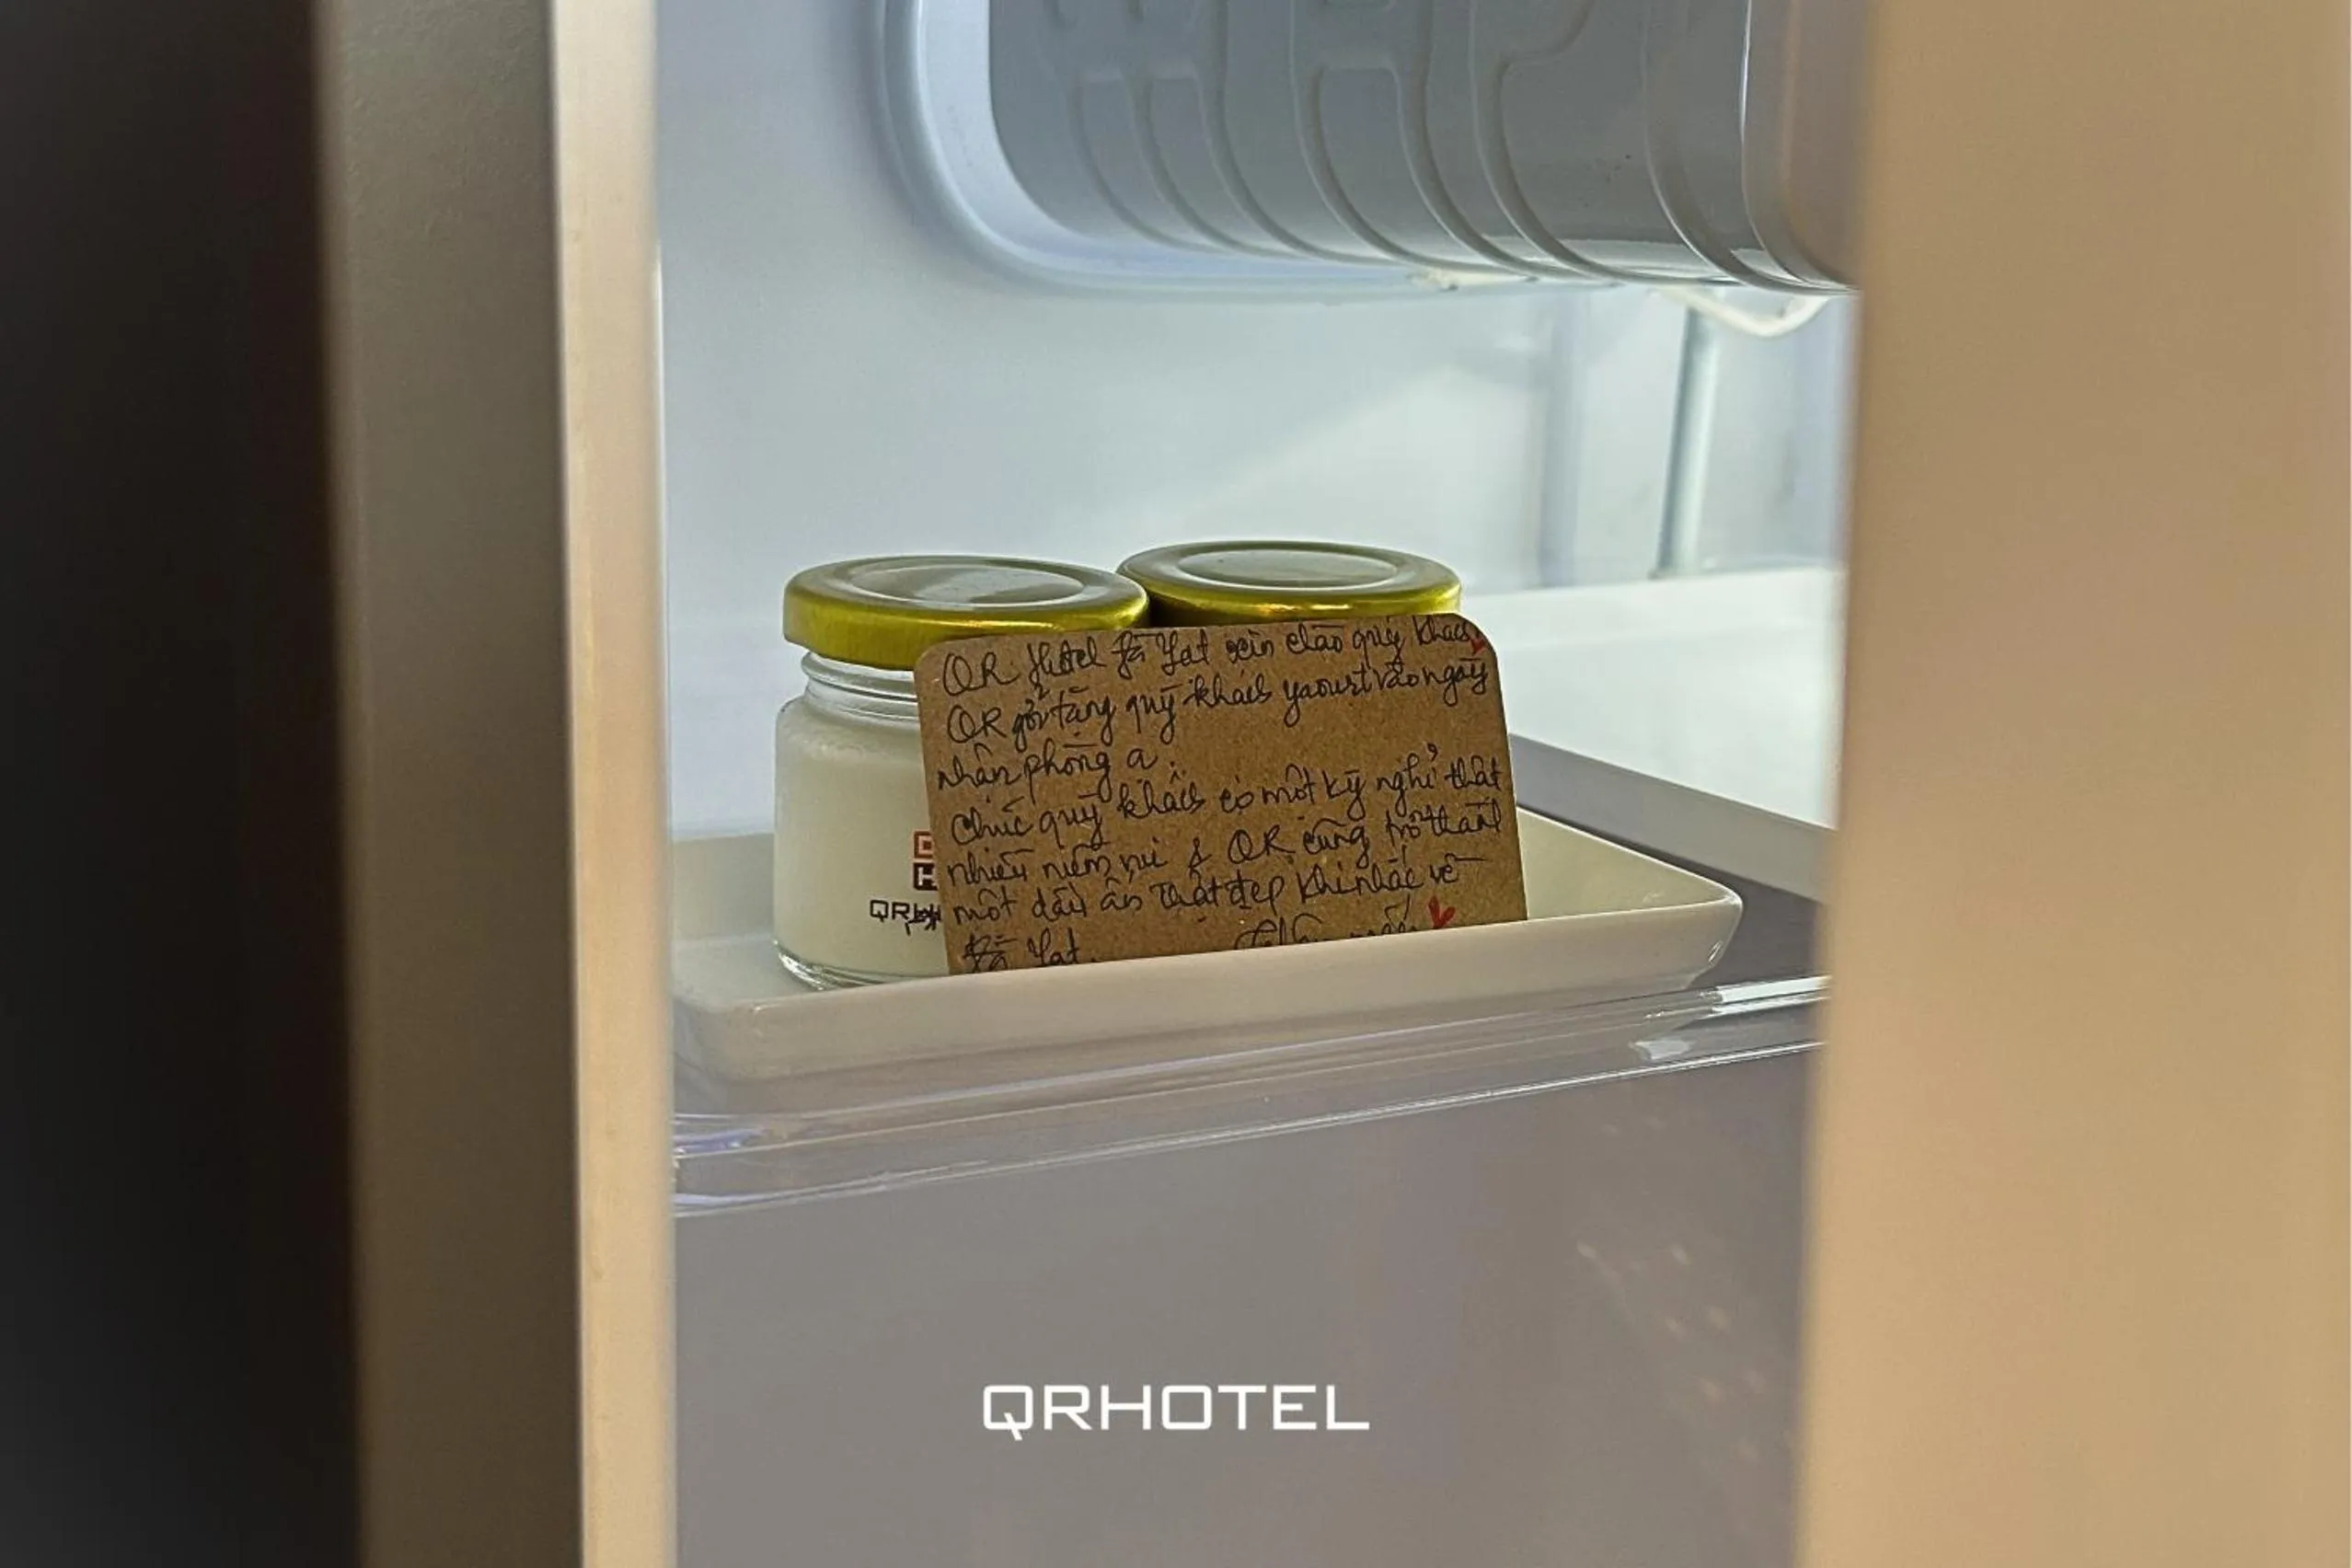 QR Hotel Đà Lạt xin chào quý khách
QR gởi tặng quý khách yaourt vào ngày
nhận phòng ạ.
Chúc quý khách có một kỳ nghỉ thật
nhiều niềm vui & QR cũng trở thành
một dấu ấn thật đẹp khi nhắc về
Đà Lạt.
QRH
QRHOTEL